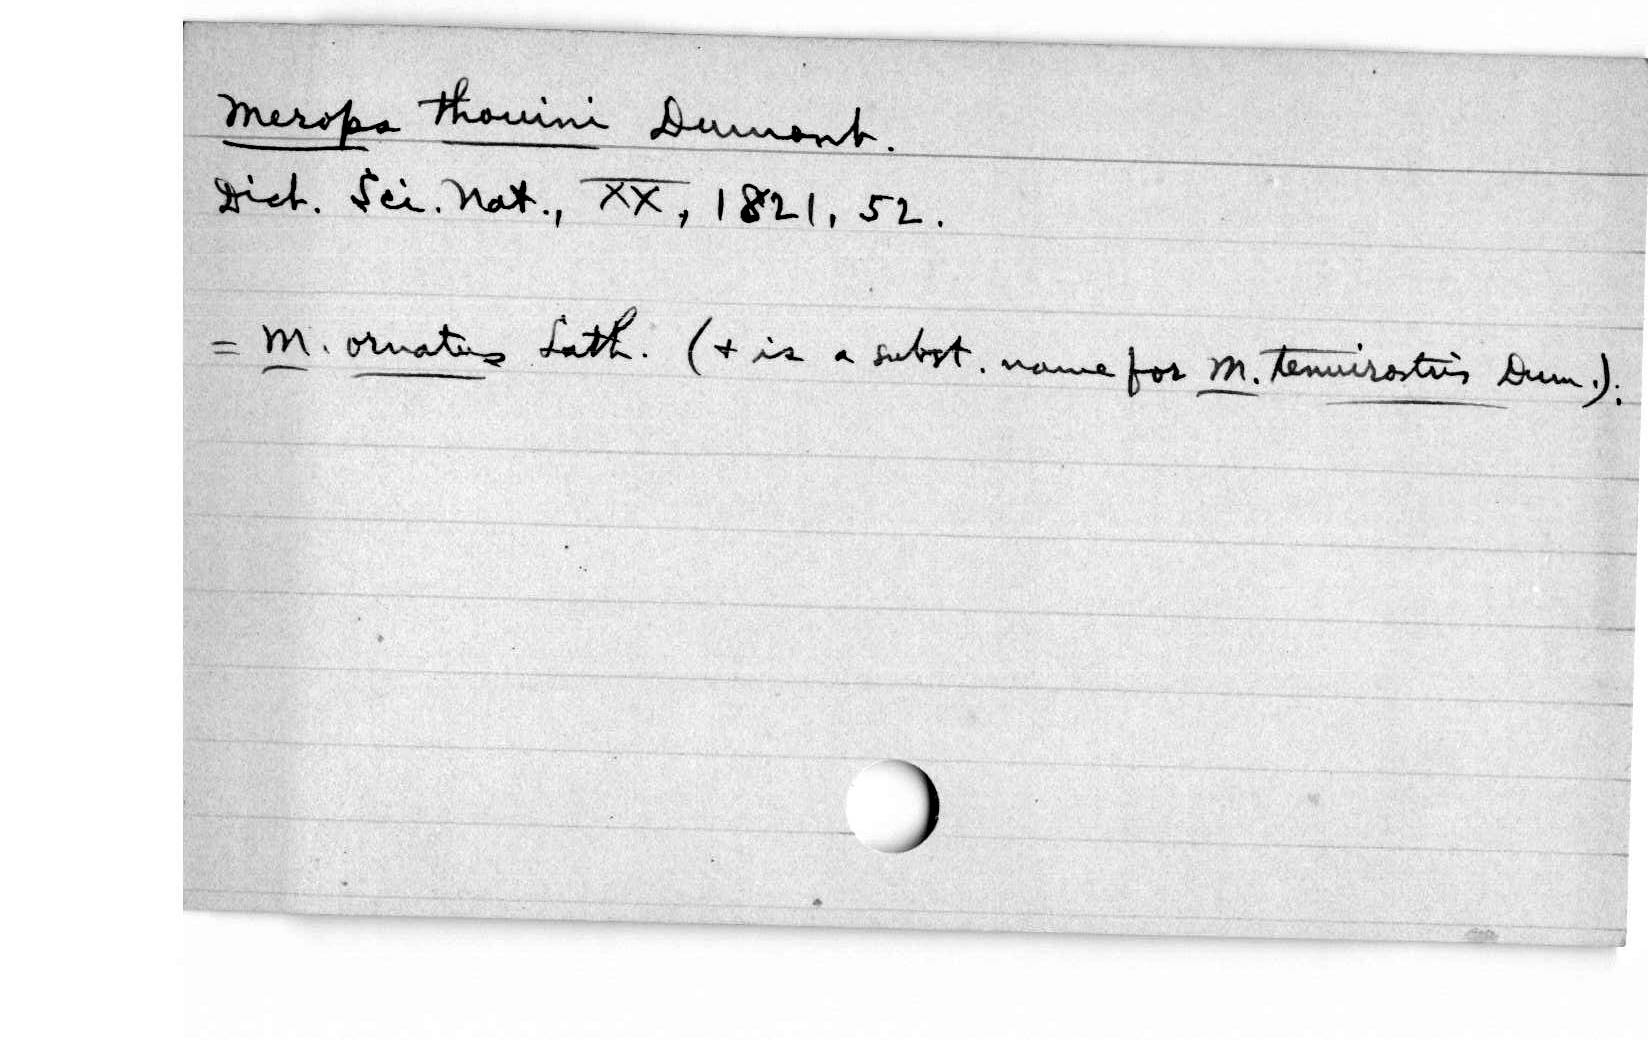 Merops thouini Dumont.
Dict. Sci. Nat., XX, 1821, 52.
= M. ornatus Lath. (+ is a subst. name for M. tenuirostris Dum.).